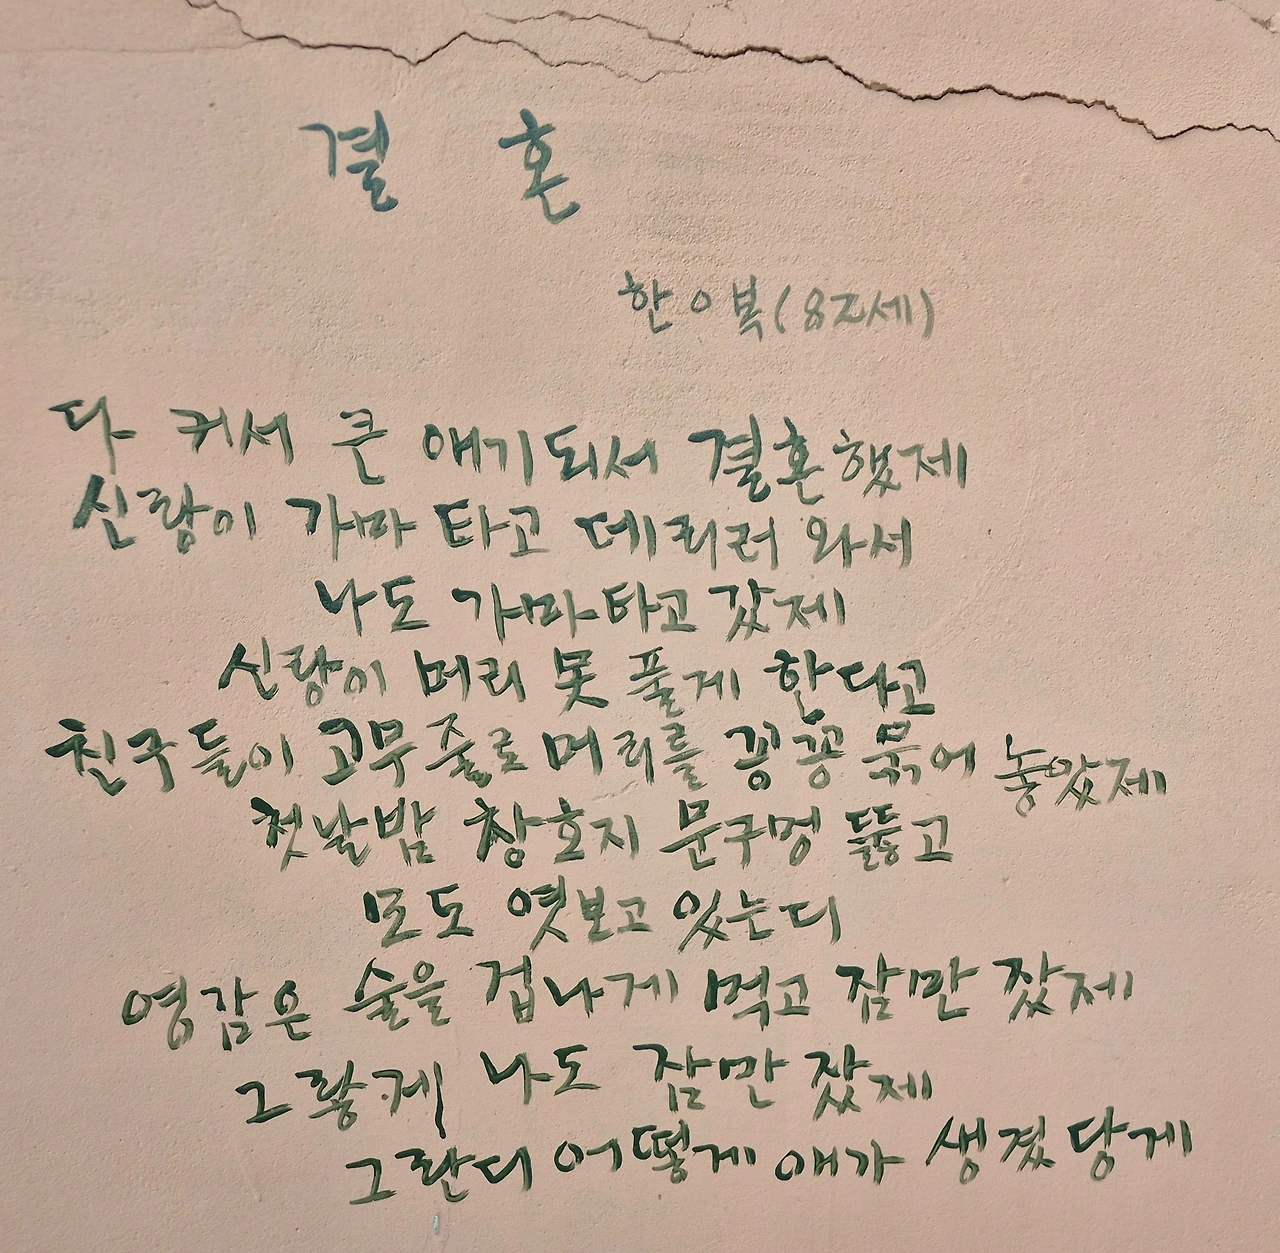 결 혼
한ㅇ복(82세)
다 커서 큰 애기되서 결혼했제
신랑이 가마 타고 데리러 와서
나도 가마타고 갔제
신랑이 머리 못 풀게 한다고
친구들이 고무줄로 머리를 꽁꽁 묶어 놓았제
첫날밤 창호지 문구멍 뚫고
모도 엿보고 있는디
영감은 술을 겁나게 먹고 잠만 잤제
그랑께 나도 잠만 잤제
그란디 어떻게 애가 생겼당게